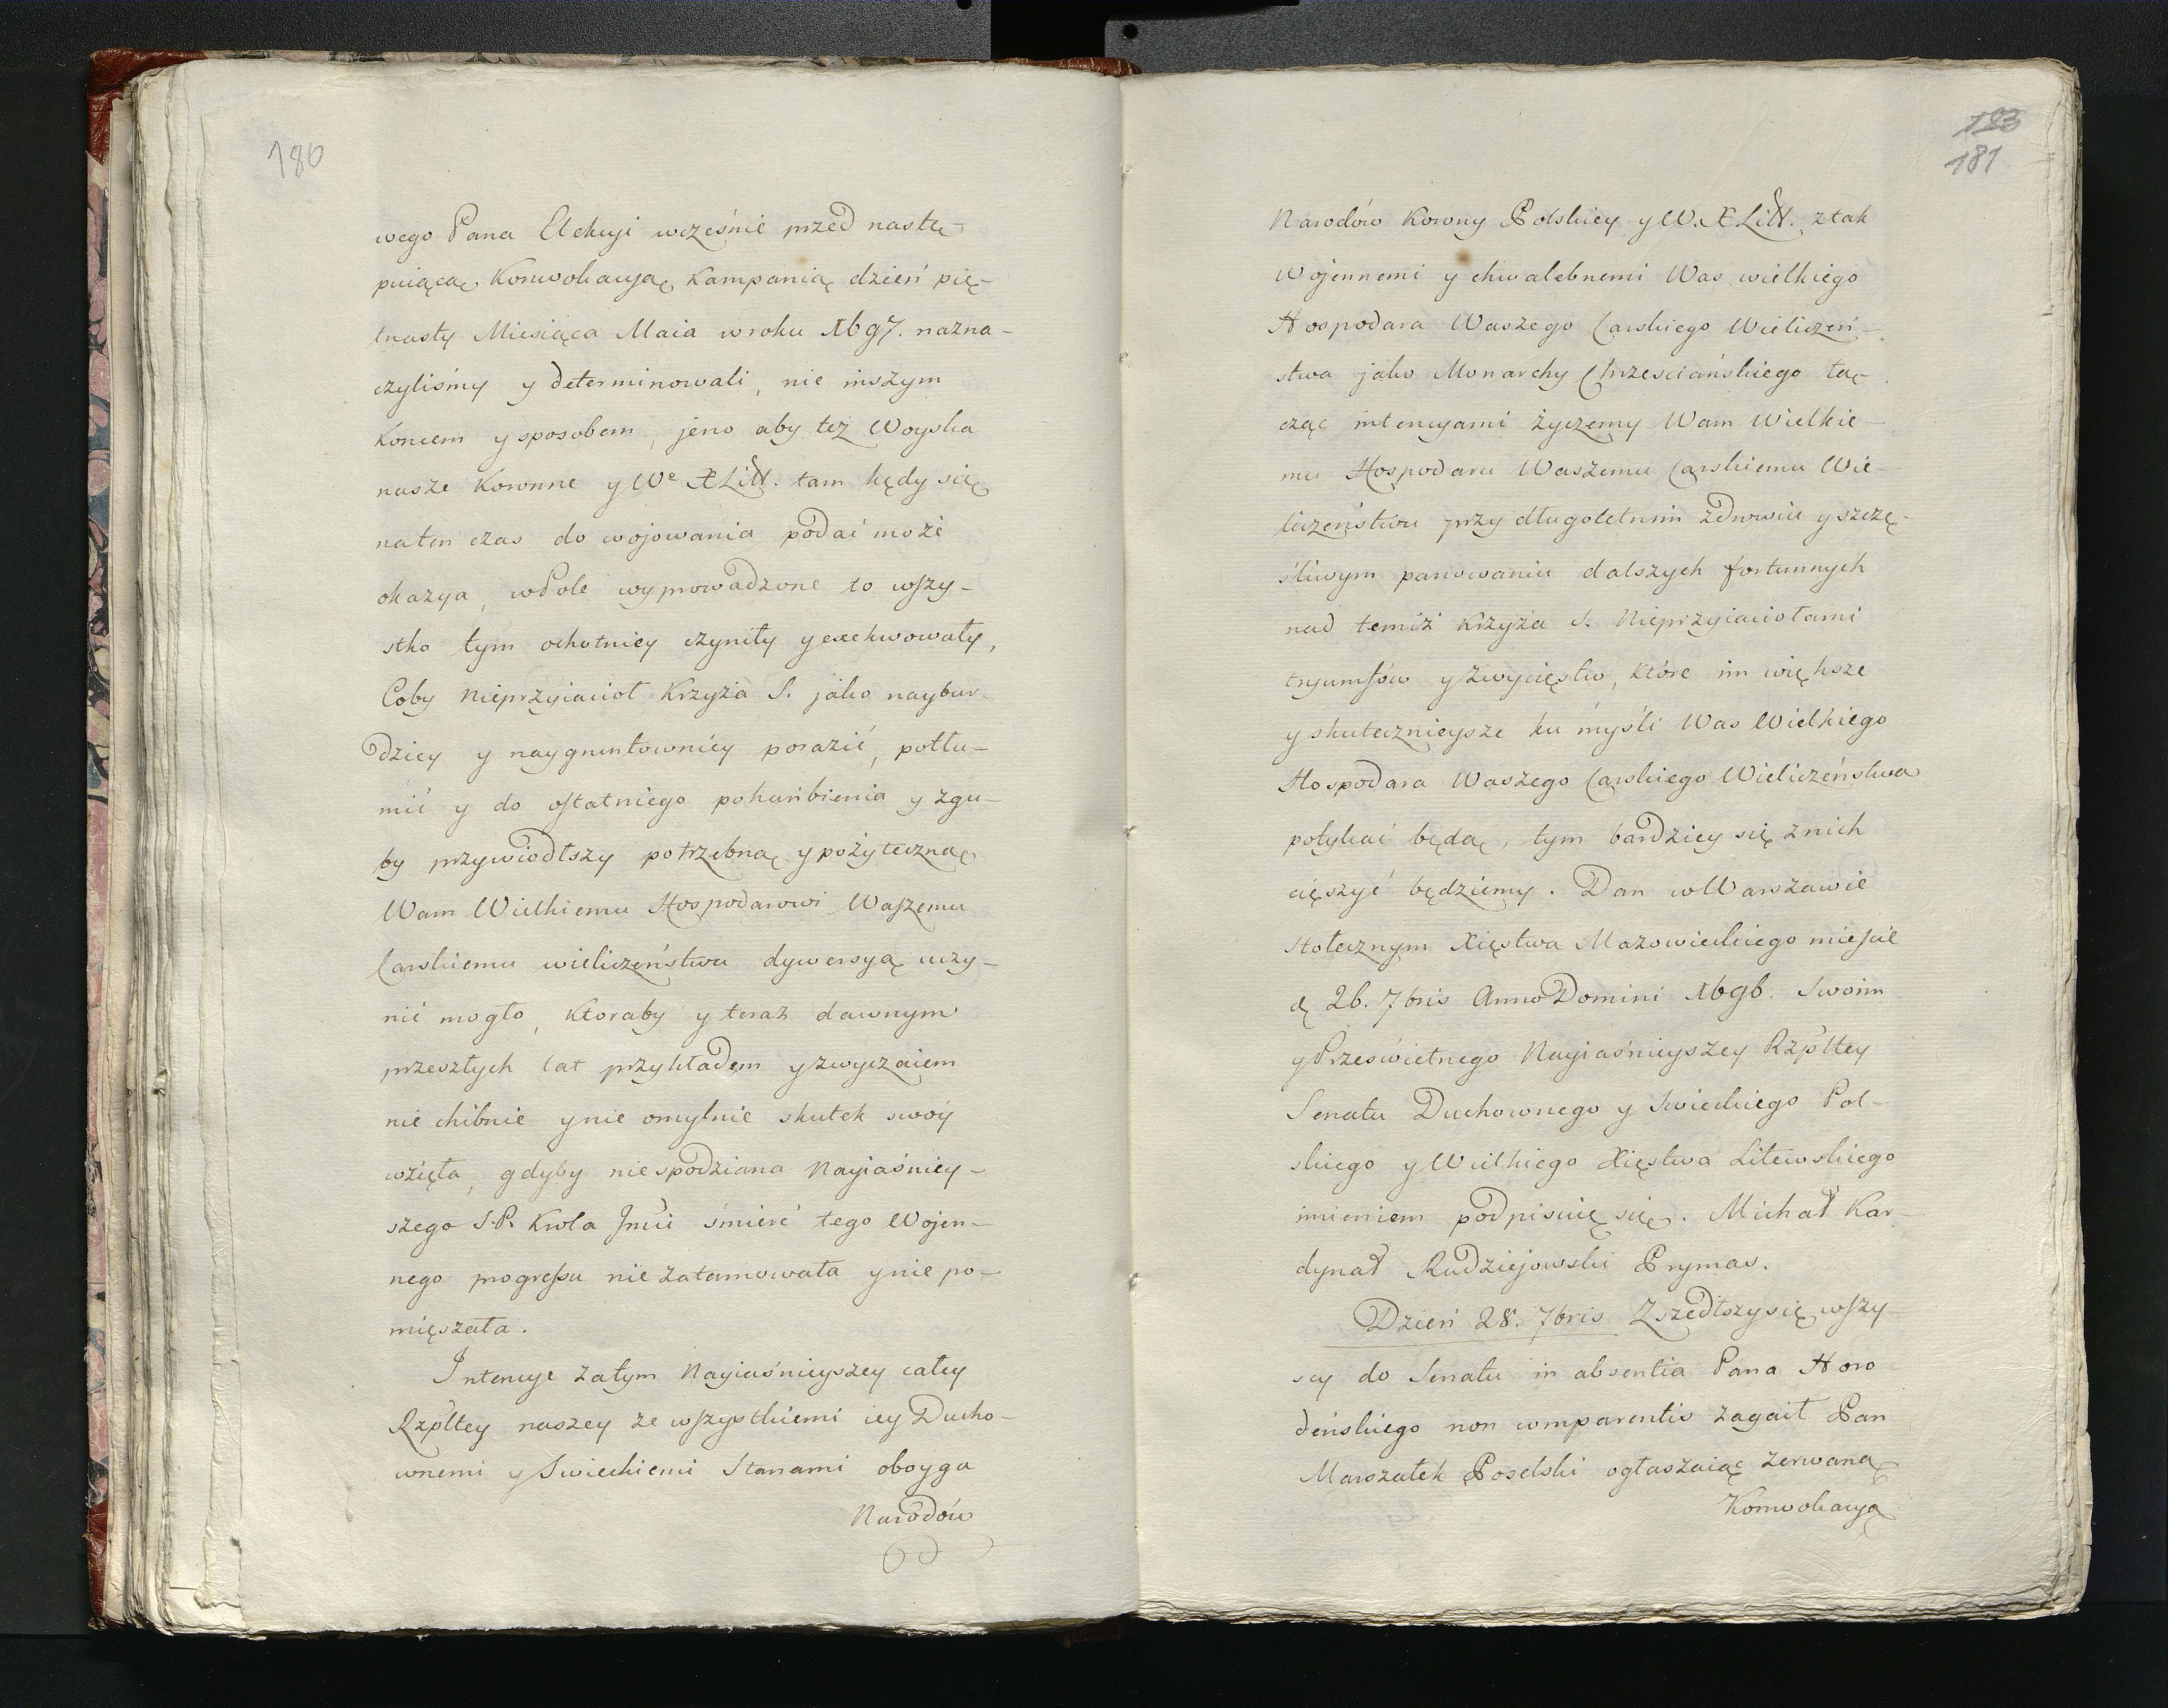 180
wego Pana Elekcyi wcześnie przed nastę-
puiącą Konwokacyą Kampanią dzień pię-
tnasty Miesiąca Maia w roku 1697. nazna-
czyliśmy y determinowali, nie inszym
koncem y sposobem, jeno aby też Woyska
nasze Koronne y We XLitt. tam kędy się
naten czas do wojowania podać może
okazya, w Pole wyprowadzone to wszy-
stko tym ochotniey czyniły y exekwowały,
Coby Nieprzyiaciol Krzyża S. jako naybar-
dziey y naygruntowniey porazić, potłu-
mić y do ostatniego pohańbienia y zgu-
by przywiodłszy potrzebną y pożyteczną
Wam Wielkiemu Hospodarowi Waszemu
Carskiemu wieliczeństwu dywersyą uczy-
nić mogło, ktoraby y teraz dawnym
przeszłych lat przykładem y zwyczaiem
nie chibnie y nie omylnie skutek swóy
wzięła, gdyby niespodziana Nayiaśniey-
szego S.P. Krola Jmci śmierć tego Wojen-
nego progressu nie zatamowała y nie po-
mięszała.
Intencye zatym Nayiaśnieyszey całey
Rzpltey naszey ze wszystkiemi iey Ducho-
wnemi y Swieckiemi Stanami oboyga
Narodów
183
181
Narodów Korony Polskiey y W. XLitt. z tak
Wojennemi y chwalebnemi Was wielkiego
Hospodara Waszego Carskiego Wieliczeń-
stwa jako Monarchy Chrześciańskiego łą-
cząc intencyami życzemy Wam Wielkie-
mu Hospodaru Waszemu Carskiemu Wie-
liczeństwu przy długoletnim zdrowiu y szczę-
śliwym panowaniu dalszych fortunnych
nad temiż Krzyża S. Nieprzyiaciołami
tryumfów y zwycięstw, które im większe
y skutecznieysze ku myśli Was Wielkiego
Hospodara Waszego Carskiego Wieliczeństwa
potykać będą, tym bardziey się z nich
cięszyć będziemy. Dan w Warszawie
stołecznym Xięstwa Mazowieckiego mieście
d. 26. 7bris Anno Domini 1696. Swoim
y Prześwietnego Nayiaśnieyszey Rzpltey
Senatu Duchownego y Swieckiego Pol-
skiego y Wielkiego Xięstwa Litewskiego
imieniem podpisuię się. Michał Kar-
dynał Radziejowski Prymas.
Dzień 28. 7bris Zszedłszy się wszy-
scy do Senatu in absentia Pana Horo
deńskiego non comparentis zagaił Pan
Marszałek Poselski ogłaszaiąc zerwaną
Konwokacyą